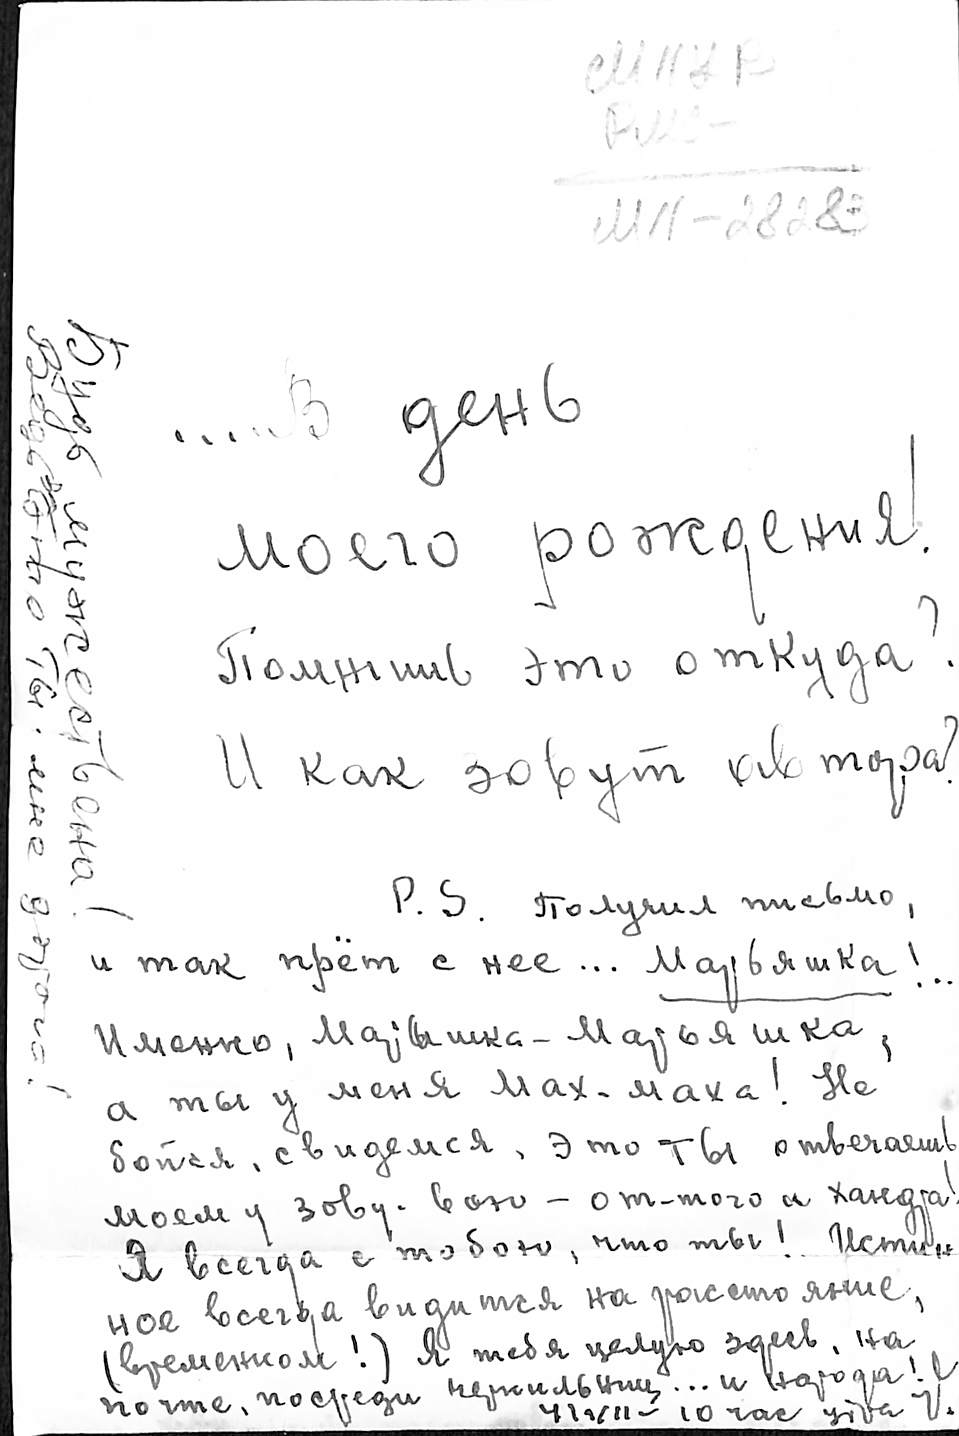 МПУК
МП-28283
.....В день
моего рождения!
Помнишь это откуда?
И как зовут автора?
P.S. Получил письмо,
и так прёт с нее... Марьяшка!..
Именно, Марьяшка-Марьяшка,
а ты у меня Мах-маха! Не
бойся, свидемся, это ты отвечаешь
моему зову. Вою - от-того и хандра!
Я всегда с тобою, что ты! Истин
ное всегда видится на расстояние,
(временном!) Я тебя целую здесь, на
почте, посреди чернильниц... и народа!
10 час утра
Будь мужественна!
Ты мне дорога!